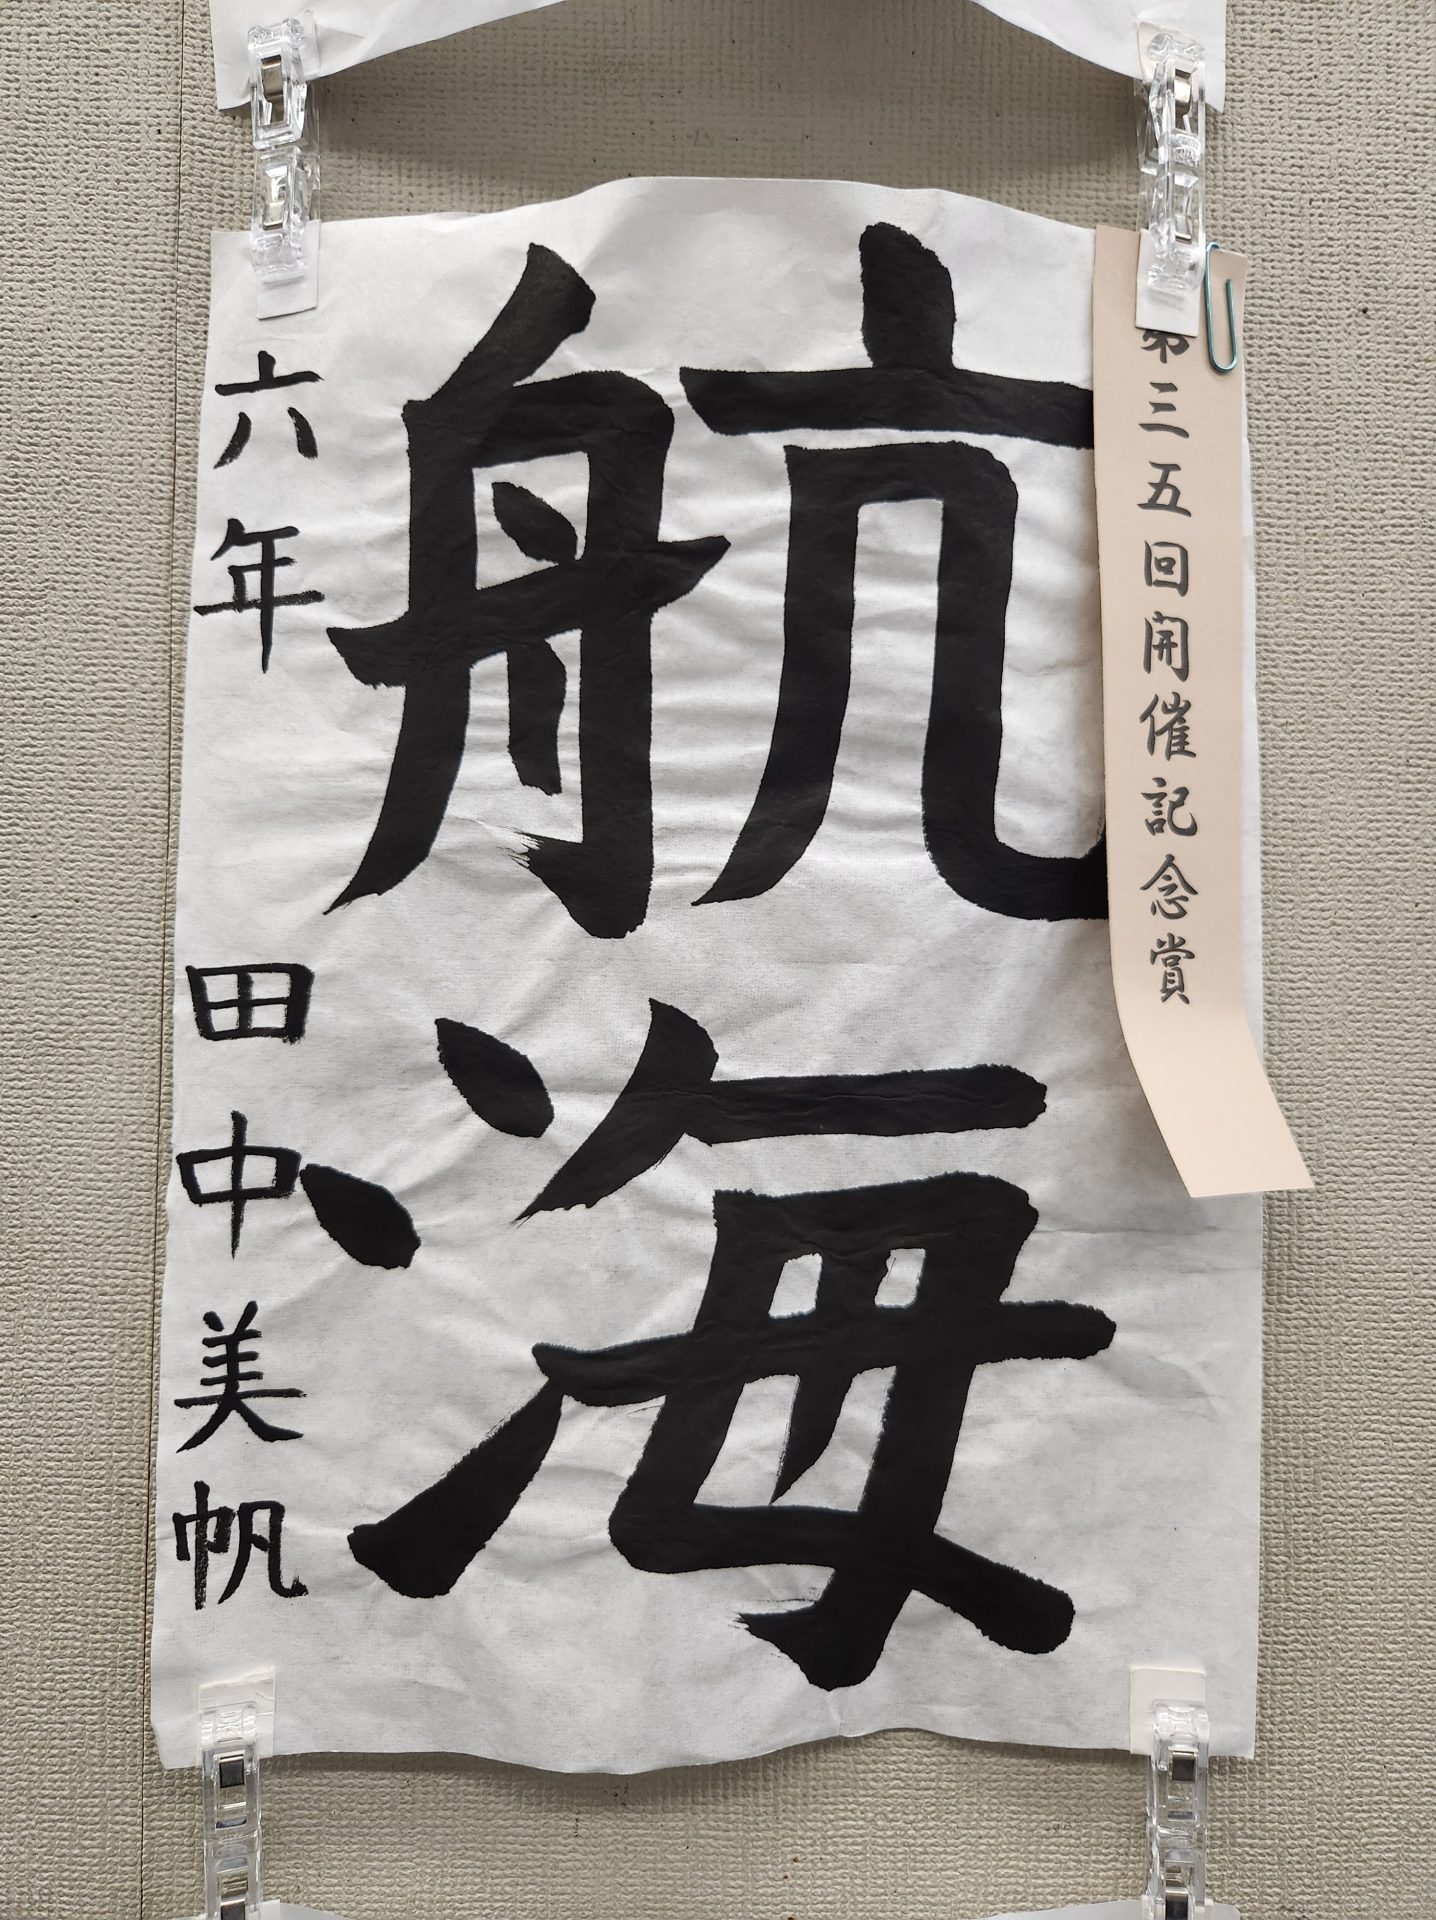 第三五回開催記念賞
航海
六年 田中美帆